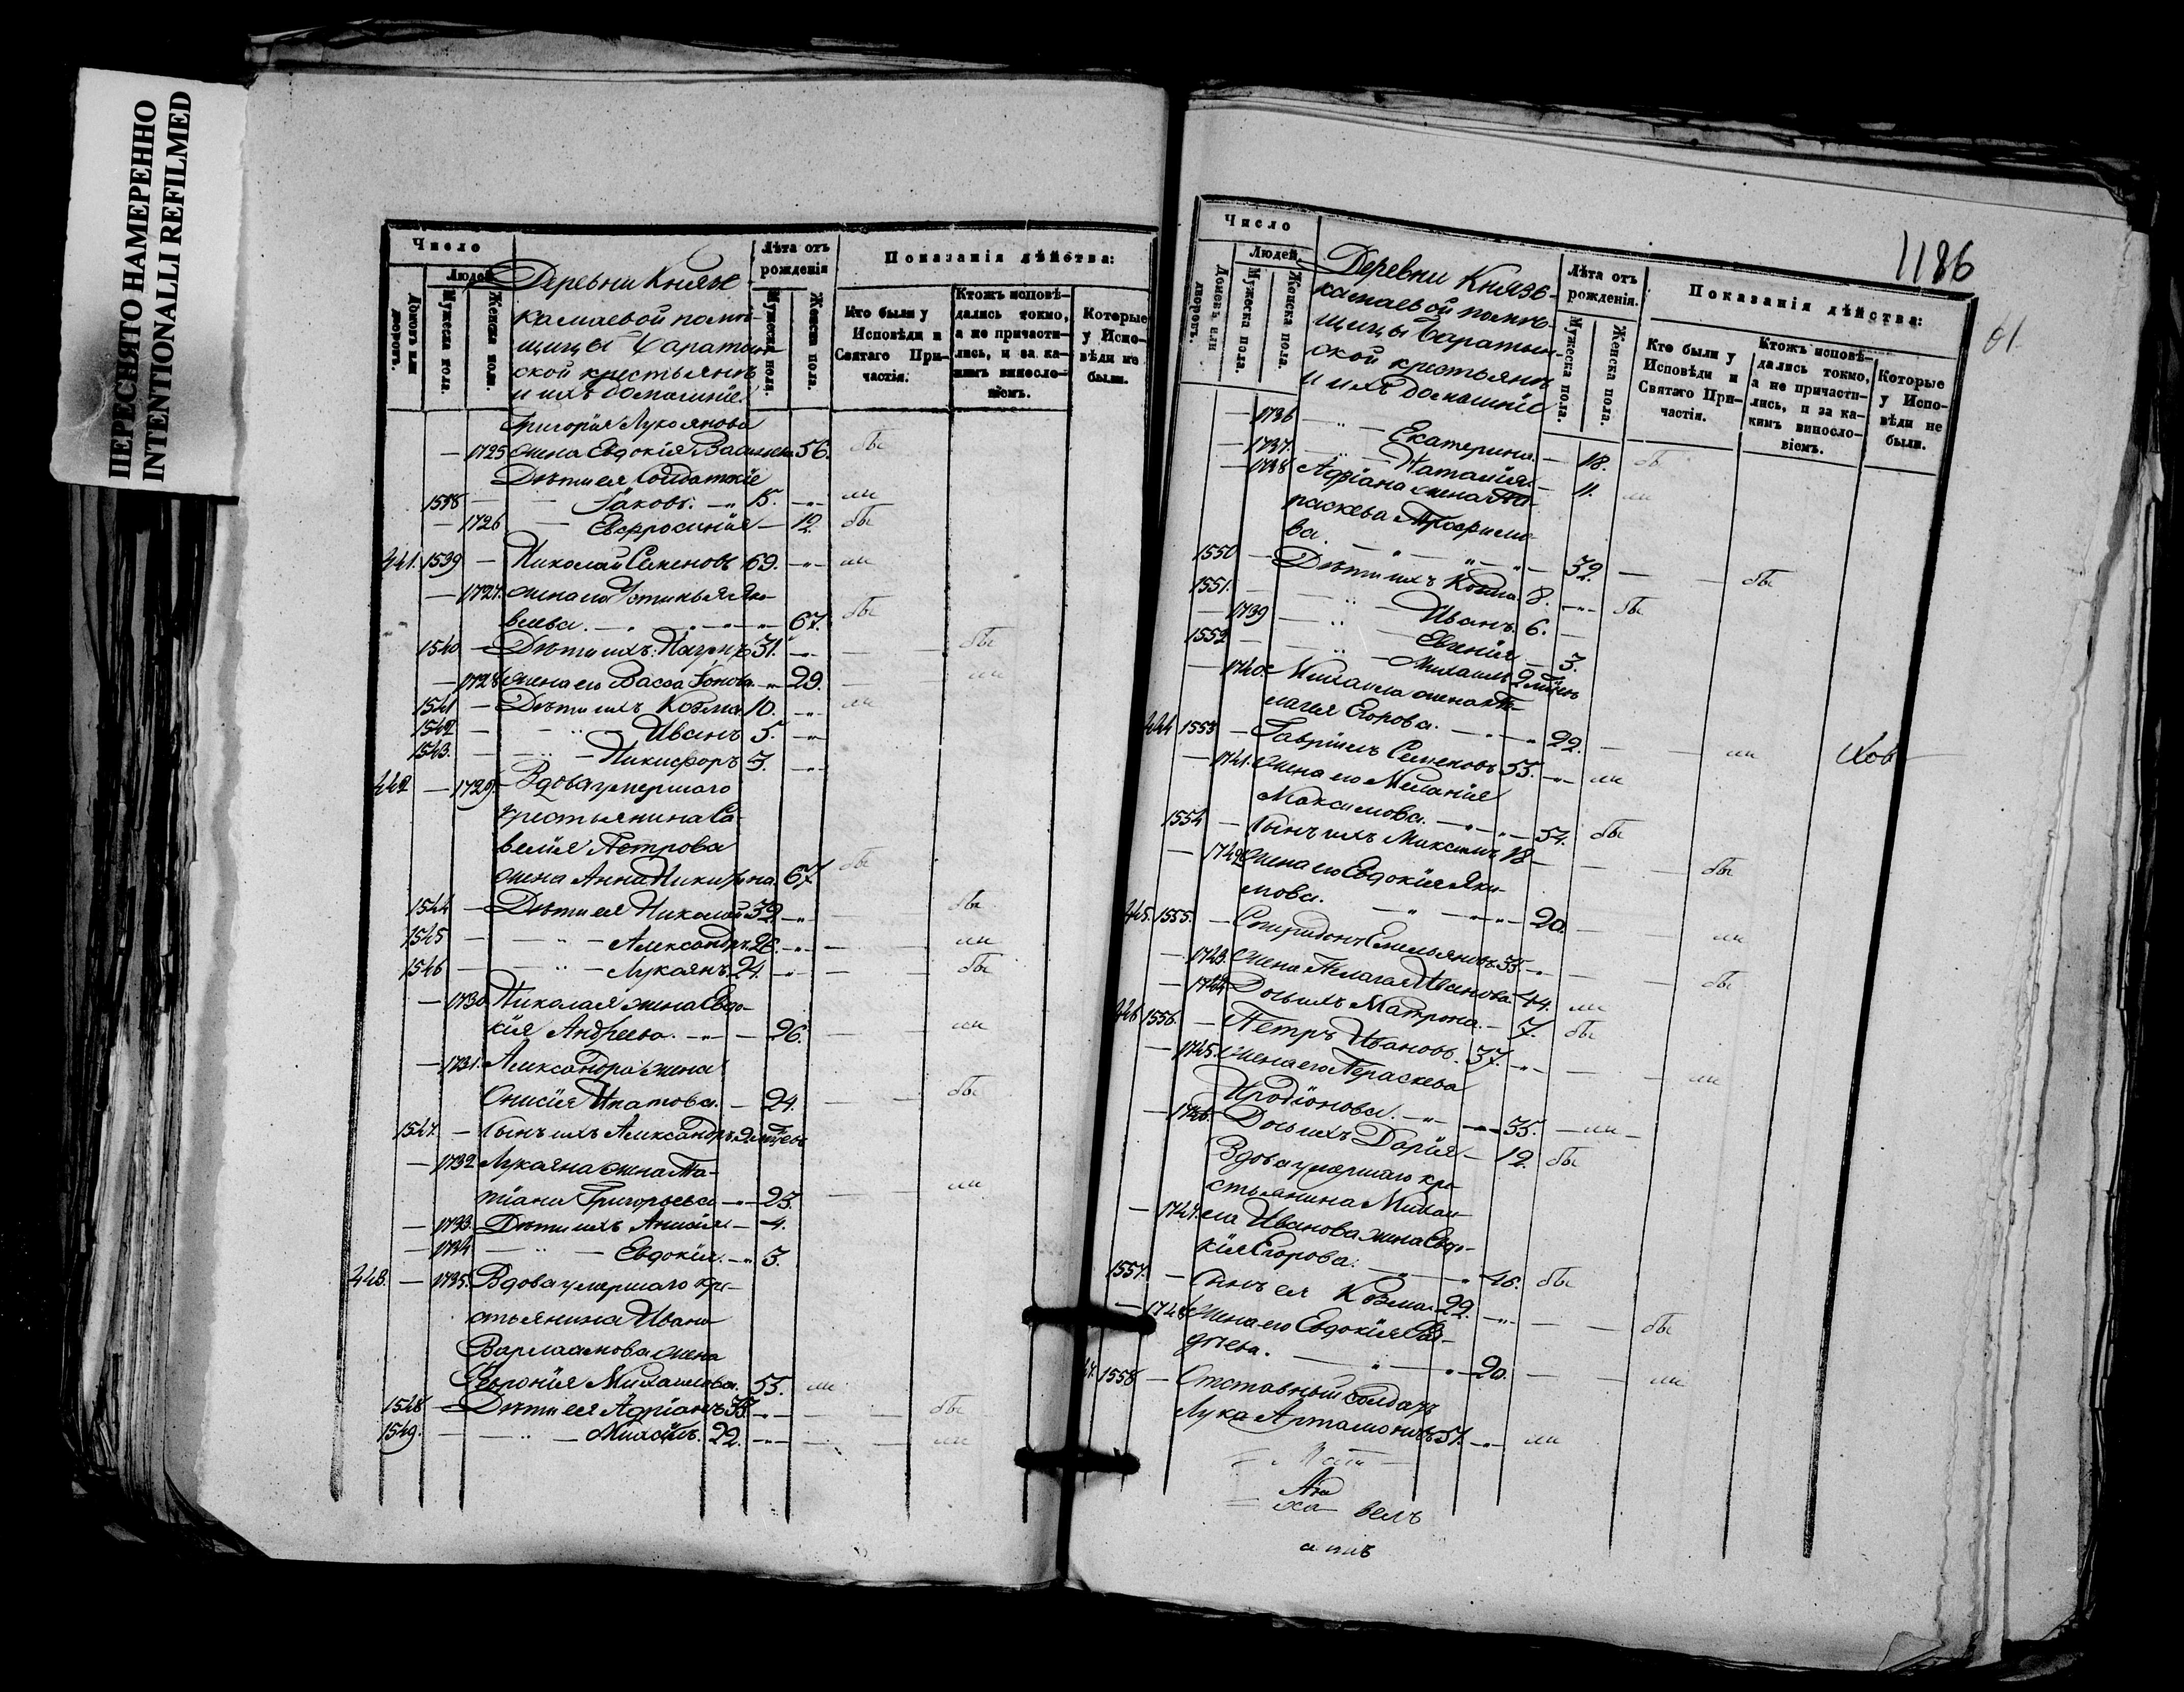 ПЕРЕСНЯТО НАМЕРЕННО
INTENTIONALLI REFILMED
Число
Людей
Домовъ или дворовъ.
Мужеска пола.
Женска пола.
Деревни Княже-
камаевой помѣ-
щицы Баратын-
ской крестьянъ
и ихъ домашніе
Лѣта отъ рожденія
Мужеска пола.
Женска пола.
Показанія дѣйства:
Кто были у Исповѣди и Святаго Причастія.
Ктожъ исповѣдались токмо, а не причастились, и за какимъ винословіемъ.
Которые у Исповѣди не были.
Григорія Лукоянова
— 1725 жена Евдокія Васильева 56. бы
Дѣти ея Солдатскіе
1538 — Іаковъ. 15. ли
— 1726 — Евфросинія — 12. бы
441. 1539 — Николай Семеновъ 69. ли
— 1727. жена его Устинья Яко-
влева. 67. бы
1540 — Дѣти ихъ: 31. бы
— 1728 жена его Васса 29. ли
1541 — Дѣти ихъ Козма. 10. ли
1542 — Иванъ 5.
1543. — Никифоръ 3.
442 — 1729. Вдова умершаго
крестьянина Са-
велія Петрова
жена Анна Никитина. 67 бы
1544 — Дѣти ея Николай 32. бы
1545 — Александръ 26. ли
1546 — Лукоянъ. 24. бы
— 1730 Николая жена Евдо-
кія Андреева. 26. ли
— 1731. Александра жена
Онисія Ипатова. — 24. бы
1547. — Сынъ ихъ Александръ
— 1732 Лукояна жена Та-
тіана Григорьева 23. ли
— 1733. Дѣти ихъ Анисія — 4.
— 1734 — Евдокія. 3.
443. — 1735. Вдова умершаго кре-
стьянина Ивана
Варлаамова жена
Ѳевронія Михайлова. 53. ли
1548 — Дѣти ея Адріанъ 33. бы
1549. — Михаилъ. 22. ли
1186
61
Число
Людей
Домовъ или дворовъ.
Мужеска пола.
Женска пола.
Деревни Княже-
камаевой помѣ-
щицы Баратын-
ской крестьянъ
и ихъ домашніе
Лѣта отъ рожденія.
Мужеска пола.
Женска пола.
Показанія дѣйства:
Кто были у Исповѣди и Святаго Причастія.
Ктожъ исповѣдались токмо, а не причастились, и за какимъ винословіемъ.
Которые у Исповѣди не были.
— 1736 — Екатерина. — 18. бы
— 1737. — Наталія. — 11. ли
— 1738 Адріана жена Па-
раскева Трофимо-
ва. 32. — бы
1550 — Дѣти ихъ Козма. 8. бы
1551. — Иванъ. 6.
— 1739 — Евгенія — 3.
1552 — Михаилъ
— 1740 Михаила жена Пе-
лагея Егорова. 22. — ли
444 1553 — Гавріилъ Семеновъ 53. ли
— 1741. Жена его Меланія
Максимова. 54. бы
1554 — Сынъ ихъ Максимъ 18 — бы
— 1742 Жена его Евдокія Яки-
мова. 20. — ли
445. 1555. — Спиридонъ Емельяновъ 35. бы
— 1743. Жена Пелагея Иванова 44. ли
— 1744 Дочь ихъ Матрона. — 7. бы
446 1556. — Петръ Ивановъ. 37. ли
— 1745. Жена его Параскева
Иродіонова. 35. — ли —
— 1746. Дочь ихъ Дарія — 12. бы
Вдова умершаго кре-
стьянина Михаи-
— 1747. ла Иванова жена Евдо-
кія Егорова. 46. бы
1557. — Сынъ ея Козма 22. бы
— 1748 Жена его Евдокія
20. ли
47. 1558 — Отставный солдатъ
Лука Артамоновъ 57. ли
велъ